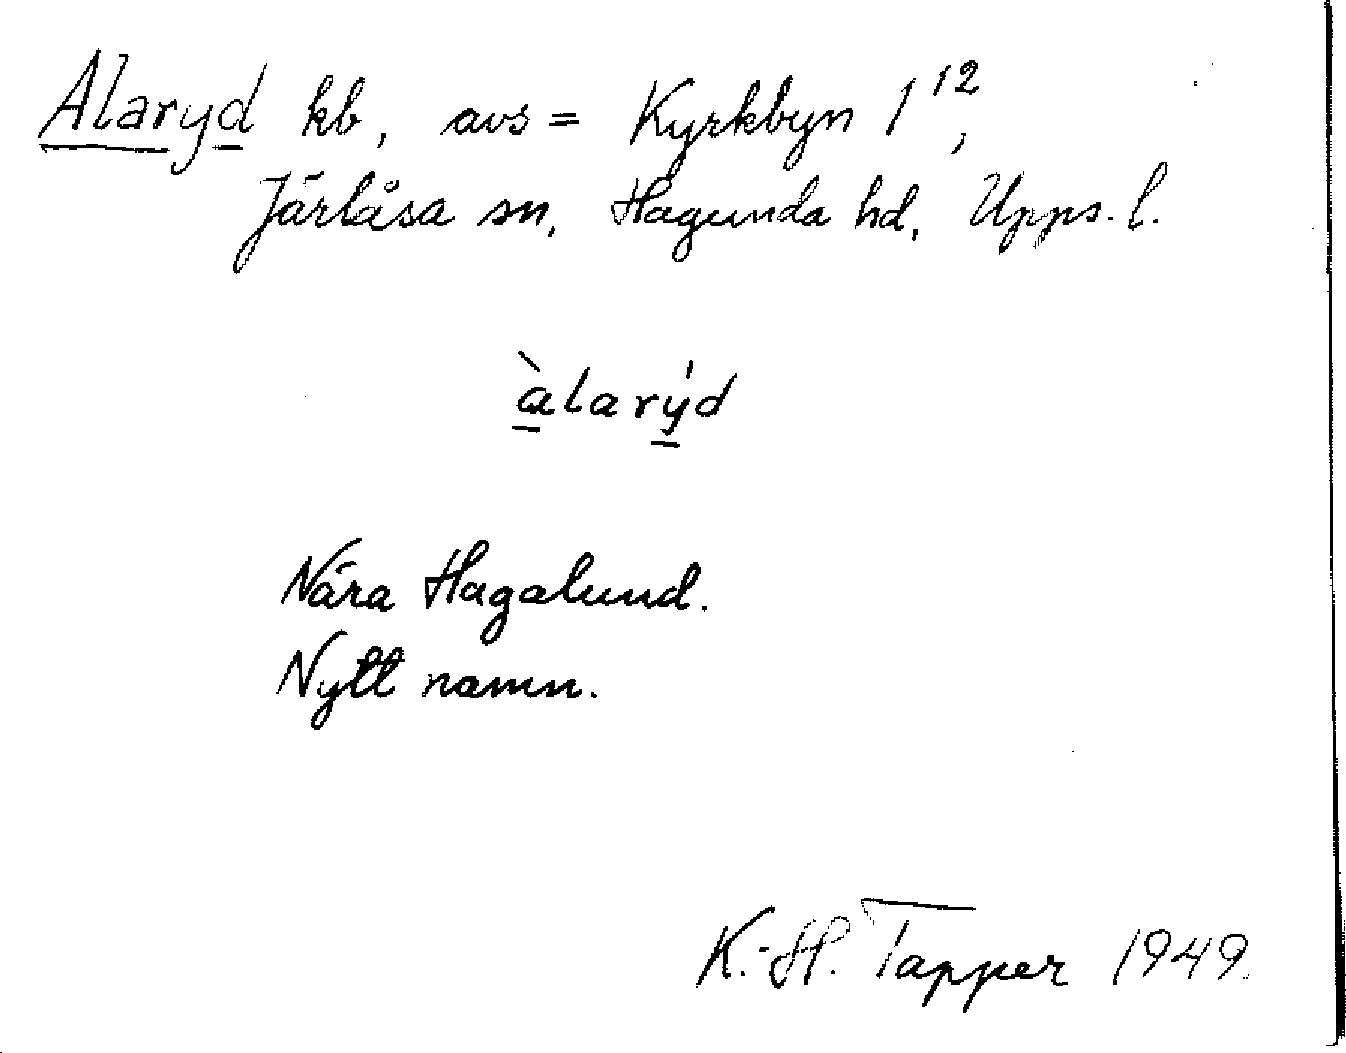 Alaryd kb, avs = Kyrkbyn 1¹²,
Järlåsa sn, Hagunda hd, Upps. l.
àlarýd
Nära Hagalund.
Nytt namn.
K.-H. Tapper 1949.